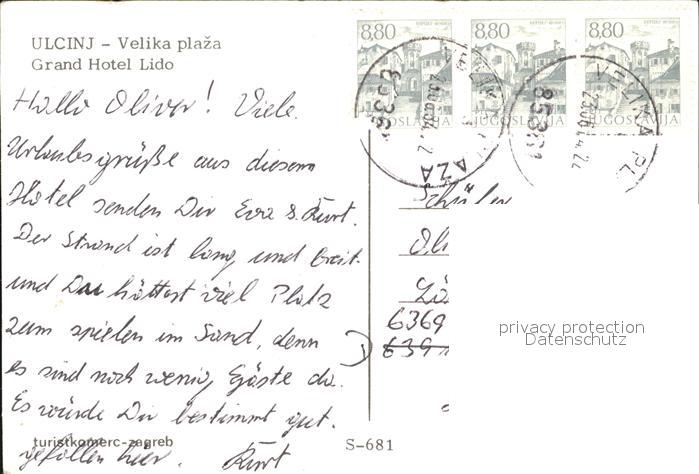 ULCINJ – Velika plaža
Grand Hotel Lido
Hallo Oliver! Viele
Urlaubsgrüße aus diesem
Hotel senden Dir Eva & Kurt.
Der Strand ist lang und breit
und Du hättest viel Platz
zum spielen im Sand, denn
es sind noch wenig Gäste da.
Es würde Dir bestimmt gut
gefallen hier. Kurt
turistkomerc-zagreb
S-681
8,80
8,80
8,80
JUGOSLAVIJA
JUGOSLAVIJA
VELIKA PL
85361
Schüler
6369
privacy protection
Datenschutz